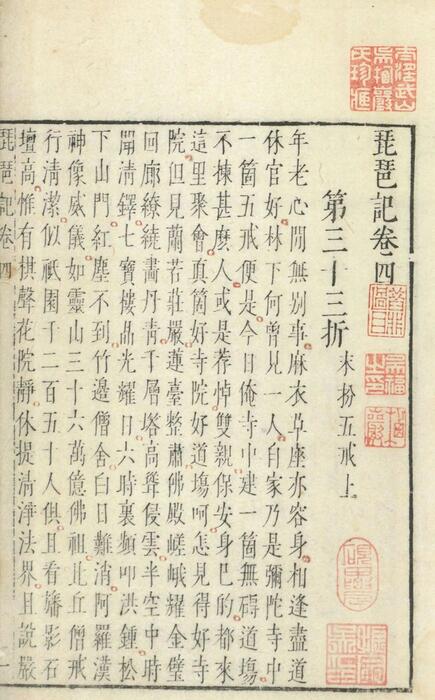 琵琶記卷四
第三十三折
末扮五戒上
年老心閒無別事麻衣草座亦容身相逢盡道
休官好林下何曾見一人自家乃是彌陀寺中
一箇五戒便是今日俺寺中建一箇無碍道塲
不揀甚麽人或是荐悼雙親保安身己的都來
這里聚會真箇好寺院好道塲呵怎見得好寺
院但見蘭若莊嚴蓮臺整肅佛殿嵯峨耀金璧
回廊繚繞畵丹青千層塔高聳侵雲半空中時
聞清鐸七寶樓晶光耀日六時裏頻叩洪鍾松
下山門紅塵不到竹邊僧舍白日難消阿羅漢
神像威儀如靈山三十六萬億佛祖比丘僧戒
行清潔似祇園千二百五十人俱且看旛影石
壇高惟有棋聲花院靜休提清淨法界且說嚴
琵琶記卷四
一